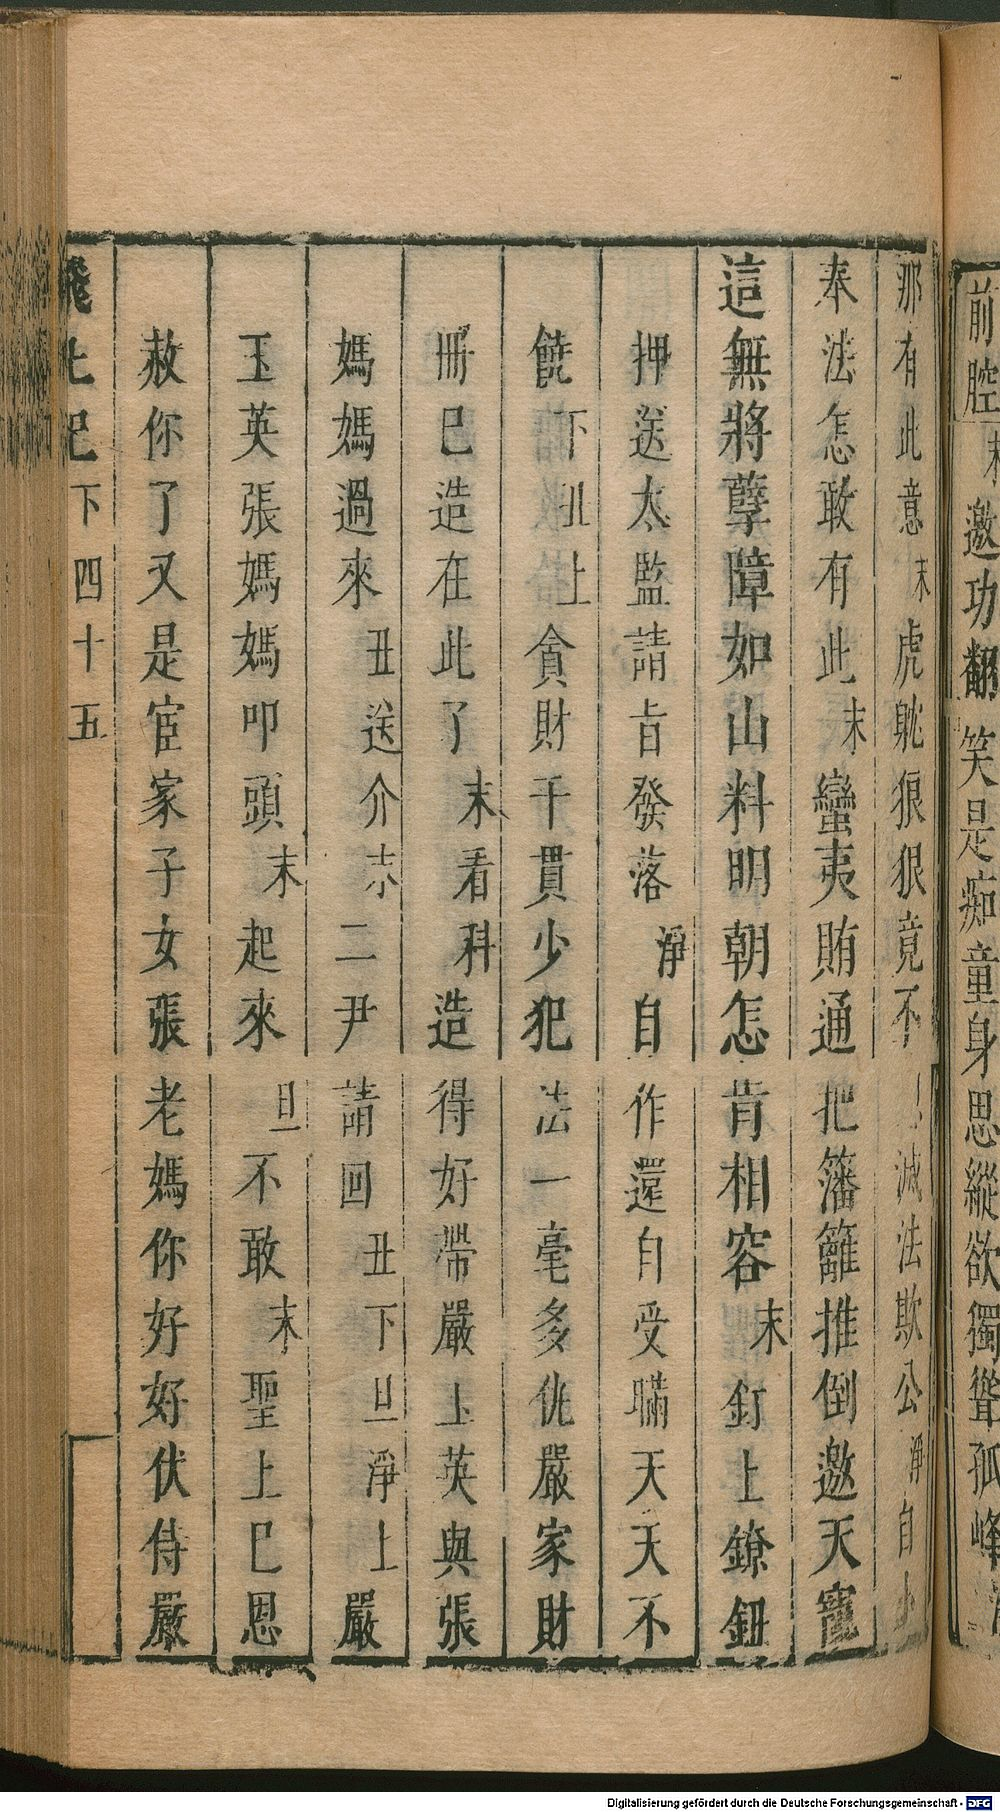 前腔 末 邀功翻 笑是痴童身思縱欲獨聳孤峰
那有此意 末 虎眈狼狠竟不 滅法欺公 淨 自
奉法怎敢有此 末 蠻夷賄通把籓籬推倒邀天寵
這無將孽障如山料明朝怎肯相容 末 釘上鐐鈕
押送太監請旨發落 淨 自作還自受瞞天天不
饒 下 丑上 貪財干貫少犯法一毫多仇嚴家財
冊已造在此了 末看科 造得好帶嚴玉英與張
媽媽過來 丑送介 末 二尹請回 丑下 旦淨上 嚴
玉英張媽媽叩頭 末 起來 旦 不敢 末 聖上已恩
赦你了又是宦家子女張老媽你好好伏侍嚴
下 四十五
Digitalisierung gefördert durch die Deutsche Forschungsgemeinschaft - DFG